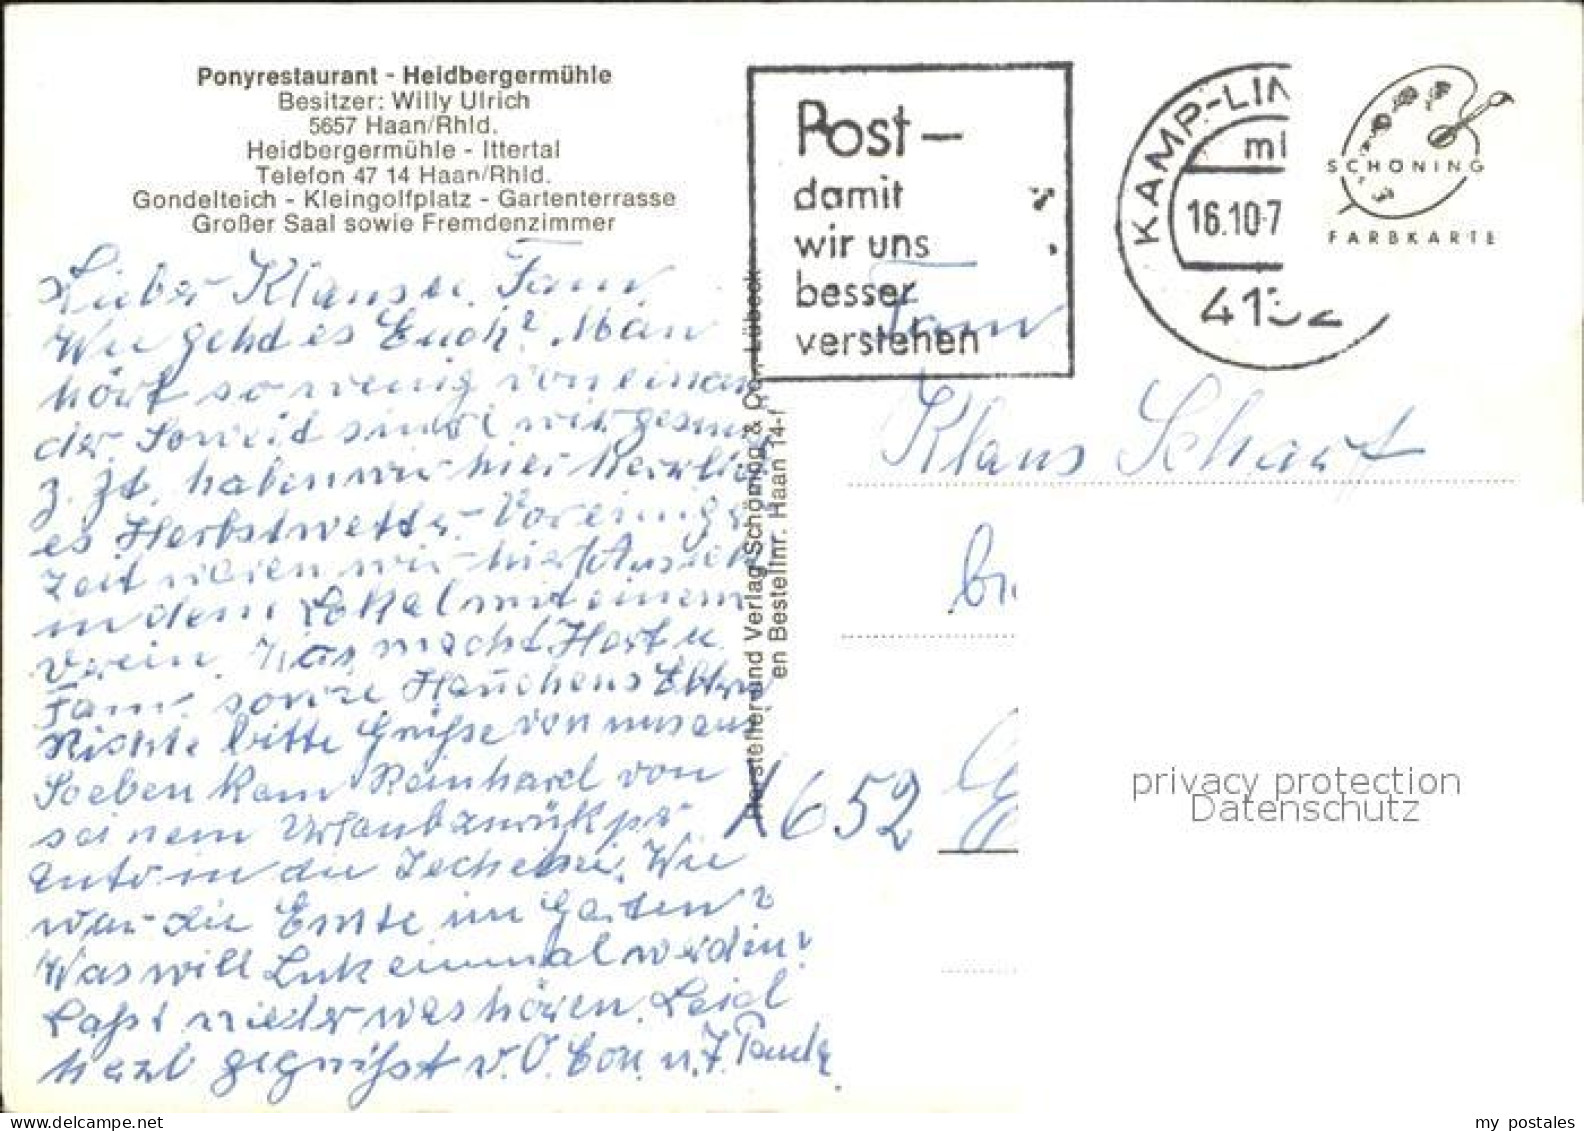 Ponyrestaurant - Heidbergermühle
Besitzer: Willy Ulrich
5657 Haan/Rhld.
Heidbergermühle - Ittertal
Telefon 47 14 Haan/Rhld.
Gondelteich - Kleingolfplatz - Gartenterrasse
Großer Saal sowie Fremdenzimmer
Lieber Klaus u. Fam.
Wie gehd es Euch? Man
hört so wenig voneinan
der. Soweid sind wir gesund
z. Zt. haben wir hier herrlich
es Herbstwetter. Vor einiger
Zeit waren wir hier
in dem Lokal mit einem
Verein. Was macht Horst u.
Fam. sowie Hänschens Eltern
Richte bitte Grüße von uns aus
Soeben kam Reinhard von
seinem Urlaub zurück per
Auto in die Tschechei. Wie
war die Ernte im Garten?
Was will Lutz einmal werden?
Laßt wieder was hören. Seid
herzl gegrüßt v. O. u. T. Paula
Hersteller und Verlag Schöning & Co., Lübeck
en Bestellnr. Haan 14-f
Post -
damit
wir uns
besser
verstehen
KAMP-LIN
16.10.7
4132
SCHÖNING
FARBKARTE
Fam
Klaus Scharf
652
privacy protection
Datenschutz
my postales